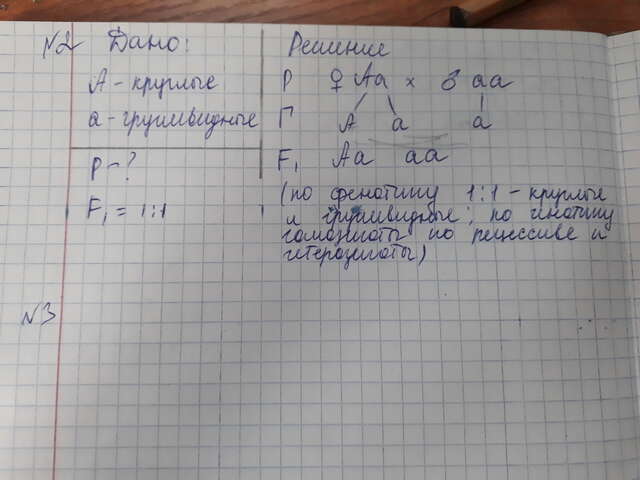 №2 Дано:
А - круглые
а - грушевидные
Р - ?
F₁ = 1:1
Решение
Р ♀ Аа × ♂ аа
Г А а а
F₁ Аа аа
(по фенотипу 1:1 - круглые
и грушевидные; по генотипу
гомозиготы по рецессиве и
гетерозиготы)
№3